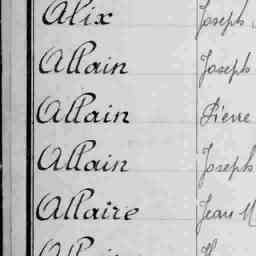 Alix Joseph
Allain Joseph
Allain Pierre
Allain Joseph
Allaire Jean M